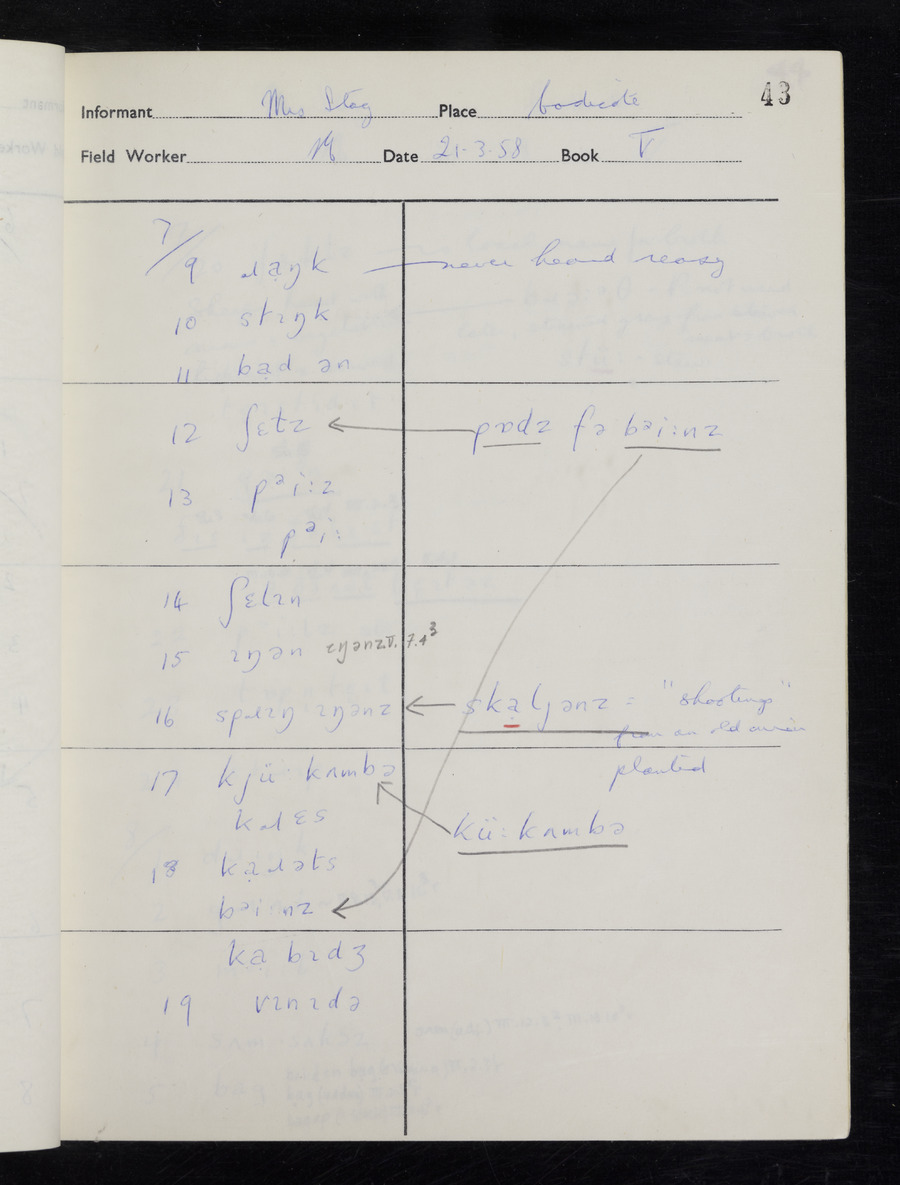 43
Informant Mrs Stag Place bodicote
Field Worker Date 21.3.58 Book V
7/9 ɹạŋk never heard reasy
10 stɪŋk
11 bạd ən
12 ʃɛtz pɒdz fə bəi:nz
13 pəi:z
pəi:
14 ʃɛlɪn
15 ɪŋən ɪŋənz V. 7.4³
16 spɹɪŋ ɪŋənz skạljənz = "shootings"
from an old onion
planted
17 kjü kʌmbə
kɹɛs
kü: kʌmbə
18 kạɹəts
bəi:nz
kạbɪdʒ
19 vɪnɪdə